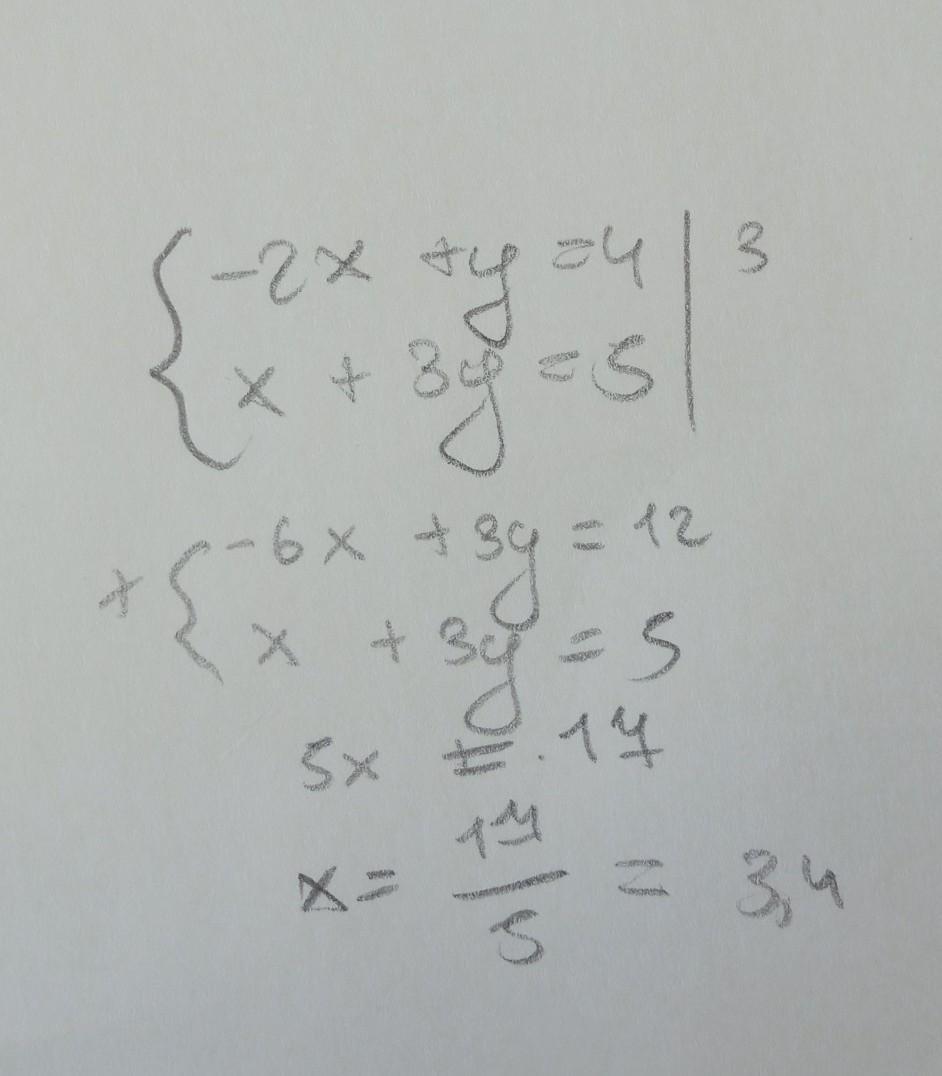 { -2x + y = 4 | 3
x + 3y = 5
+ { -6x + 3y = 12
x + 3y = 5
5x = 17
x = 17/5 = 3,4